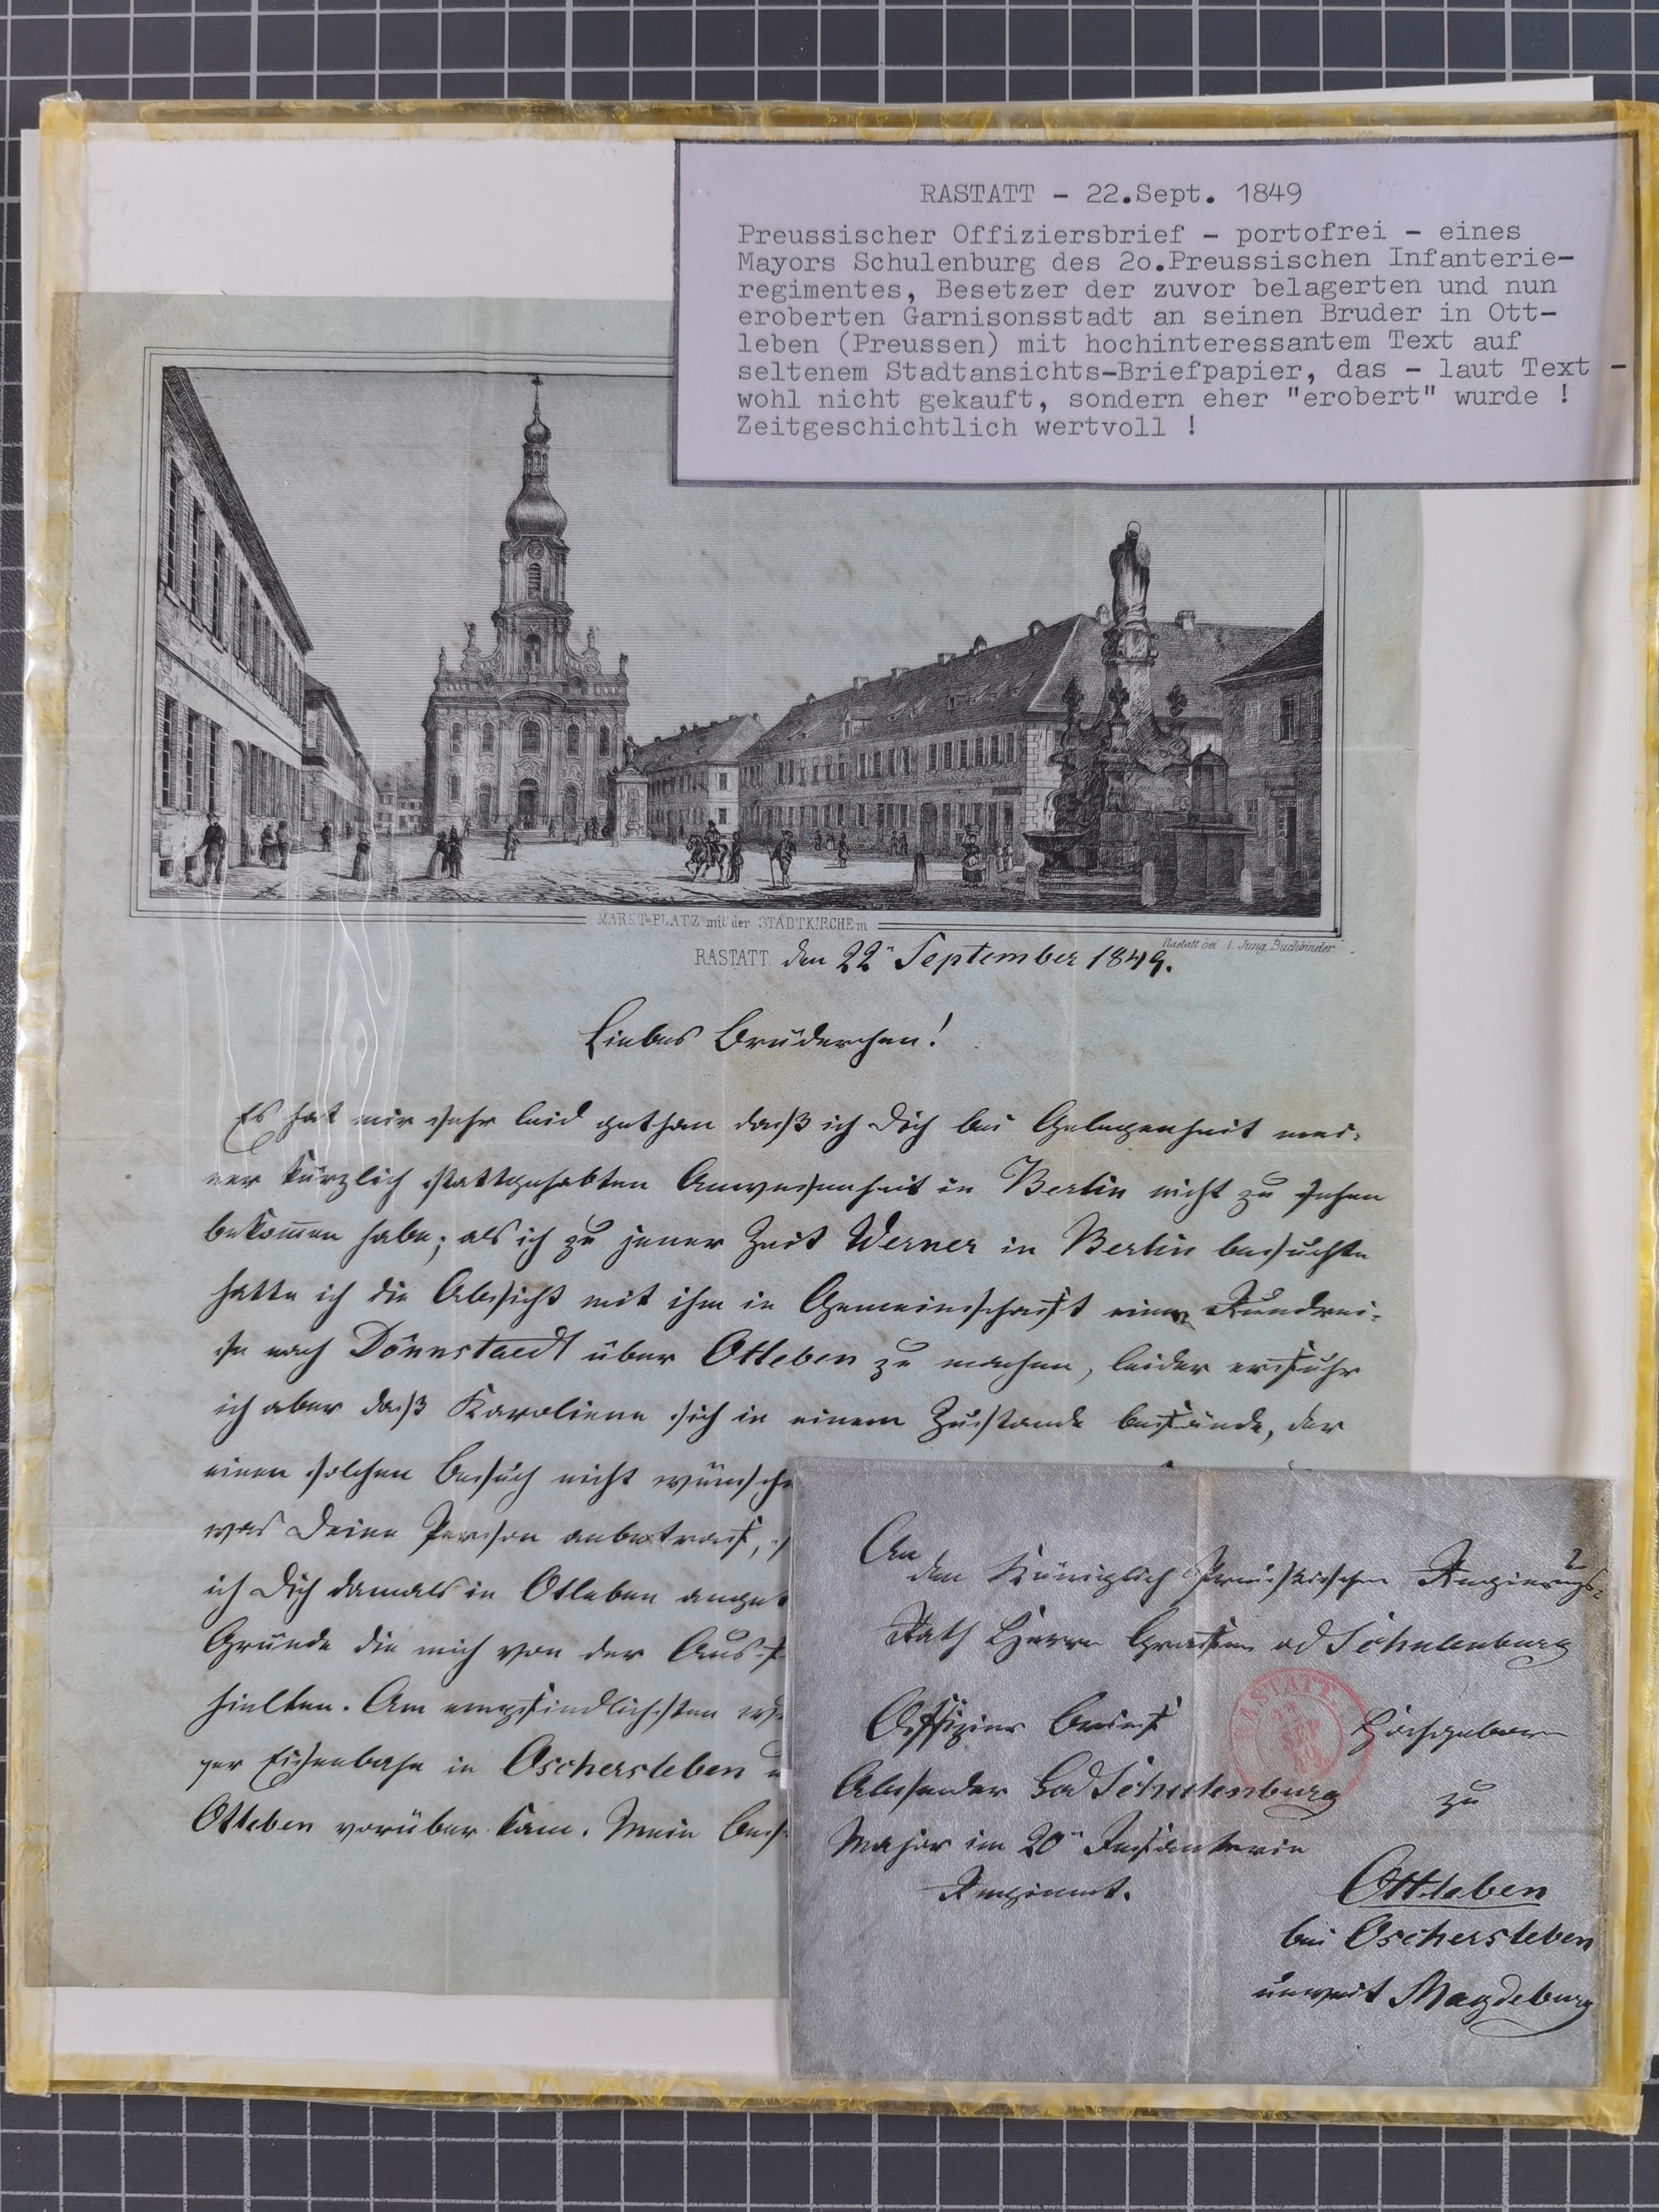 RASTATT - 22.Sept. 1849
Preussischer Offiziersbrief - portofrei - eines
Mayors Schulenburg des 2o.Preussischen Infanterie-
regimentes, Besetzer der zuvor belagerten und nun
eroberten Garnisonsstadt an seinen Bruder in Ott-
leben (Preussen) mit hochinteressantem Text auf
seltenem Stadtansichts-Briefpapier, das - laut Text -
wohl nicht gekauft, sondern eher "erobert" wurde !
Zeitgeschichtlich wertvoll !
MARKT-PLATZ mit der STADTKIRCHE in
Rastatt bei A. Jung, Buchbinder.
RASTATT den 22ⁿ September 1849.
Liebes Brüderchen!
Es hat mir sehr leid gethan daß ich Dich bei Gelegenheit mei-
ner kürzlich stattgehabten Anwesenheit in Berlin nicht zu sehen
bekomen habe; als ich zu jener Zeit Werner in Berlin besuchte
hatte ich die Absicht mit ihm in Gemeinschaft eine Rundrei-
se nach Dönnstaedt über Otleben zu machen, leider erfuhr
ich aber daß Karoliene sich in einem Zustande befände, der
einen solchen Besuch nicht wünsche
was Deine Person anbetraf,
ich Dich damals in Otleben anget
Gründe die mich von der Ausf
hielten. Am empfindlichsten
per Eisenbahn in Oschersleben
Otleben vorüber kam. Mein Bes
An
den Königlich Preußischen Regierungs-
Rath Herrn Grafen vd Schulenburg
Offizier Brief Hochgeboren
RASTATT
22
SEP
49
Absender vd Schulenburg zu
Major im 20ⁿ Infanterie
Regiment.
Ottleben
bei Oschersleben
unweit Magdeburg